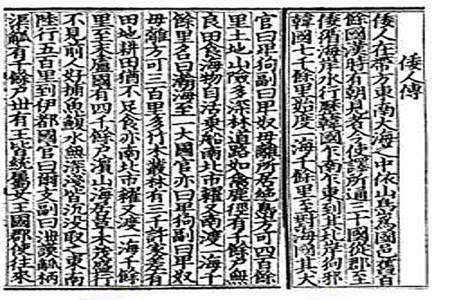 倭人傳
倭人在帶方東南大海之中依山㠀爲國邑舊百
餘國漢時有朝見者今使譯所通三十國從郡至
倭循海岸水行歷韓國乍南乍東到其北岸狗邪
韓國七千餘里始度一海千餘里至對海國其大
官曰卑狗副曰卑奴毋離所居絶㠀方可四百餘
里土地山險多深林道路如禽鹿徑有千餘戶無
良田食海物自活乗船南北市糴又南渡一海千
餘里名曰瀚海至一大國官亦曰卑狗副曰卑奴
毋離方可三百里多竹木叢林有三千許家差有
田地耕田猶不足食亦南北市糴又渡一海千餘
里至末盧國有四千餘戶濱山海居草木茂盛行
不見前人好捕魚鰒水無深淺皆沈沒取之東南
陸行五百里到伊都國官曰爾支副曰泄謨觚柄
渠觚有千餘戶世有王皆統屬女王國郡使往來